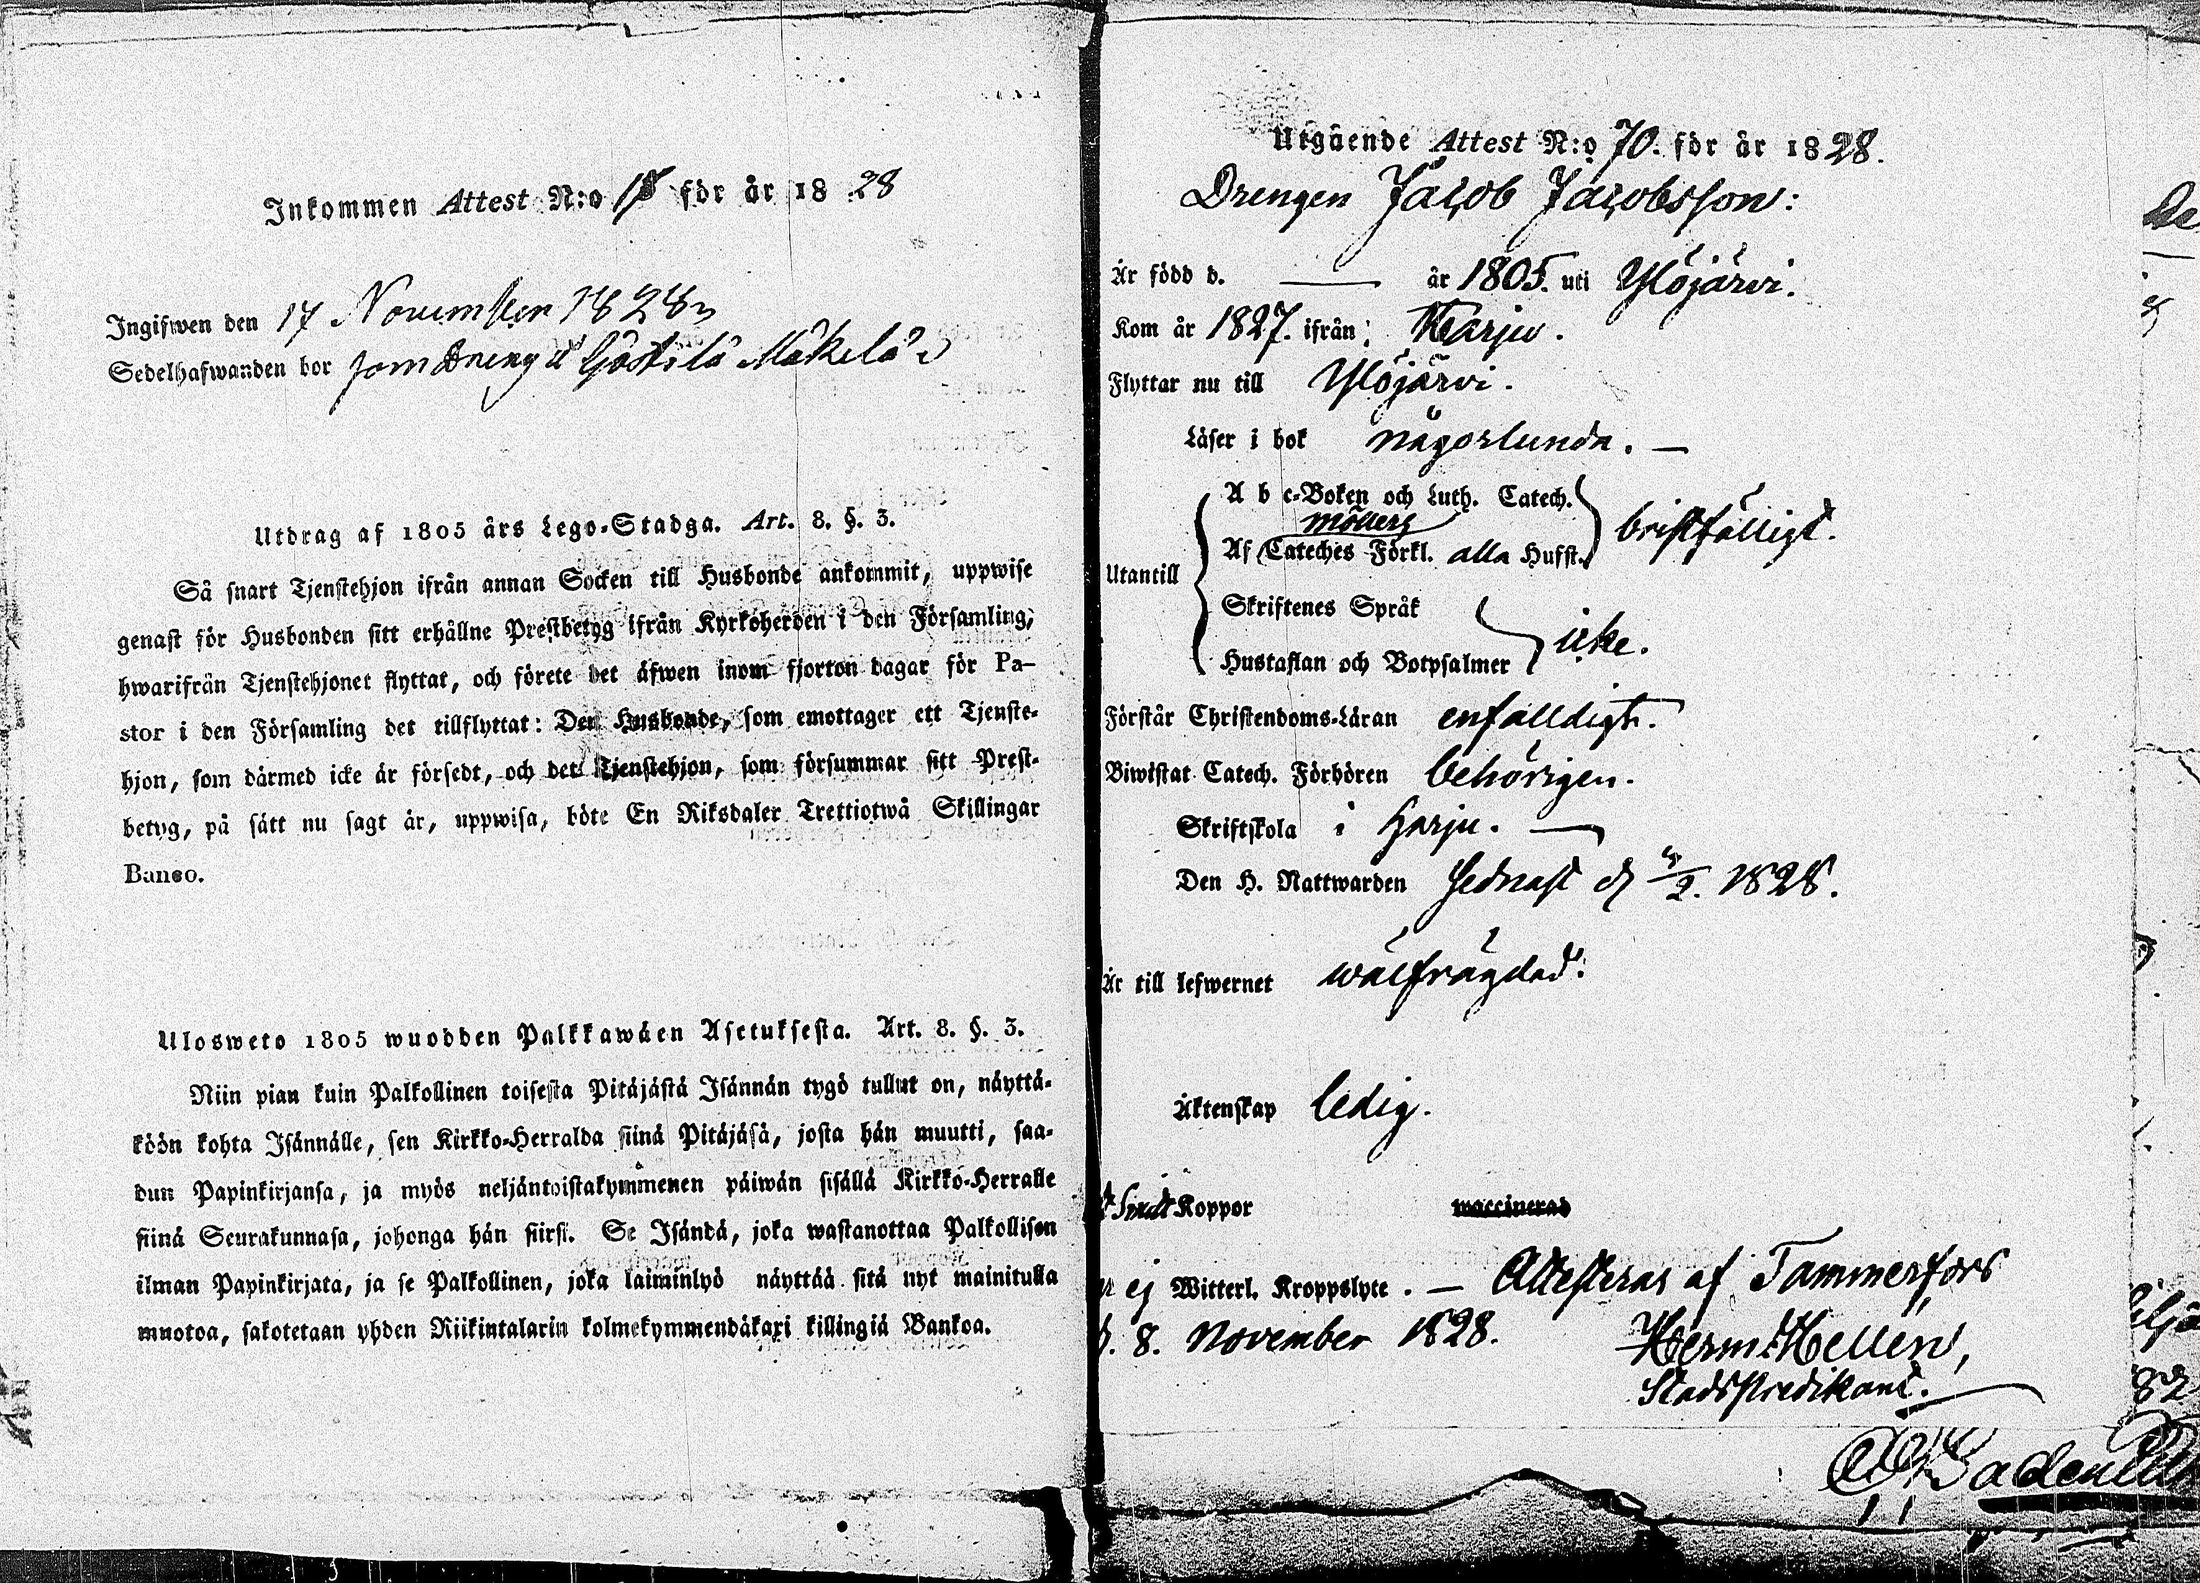 Inkommen Attest N:o för år 18 28
Ingifwen den 17 November 1828
Sedelhafwanden bor som Dreng Mäkelä
Utdrag af 1805 års Lego-Stadga. Art. 8. §. 3.
Så snart Tjenstehjon ifrån annan Socken till Husbonde ankommit, uppwise
genast för Husbonden sitt erhållne Prestbetyg ifrån Kyrkoherden i den Församling,
hwarifrån Tjenstehjonet flyttat, och förete det äfwen inom fjorton dagar för Pa-
stor i den Församling det tillflyttat: Den Husbonde, som emottager ett Tjenste-
hjon, som därmed icke är försedt, och det Tjenstehjon, som försummar sitt Prest-
betyg, på sätt nu sagt är, uppwisa, böte En Riksdaler Trettiotwå Skillingar
Banco.
Ulosweto 1805 wuodden Palkkawäen Asetuksesta. Art. 8. §. 3.
Niin pian kuin Palkollinen toisesta Pitäjästä Isännän tygö tullut on, näyttä-
köön kohta Isännälle, sen Kirkko-Herralda siinä Pitäjäsä, josta hän muutti, saa-
dun Papinkirjansa, ja myös neljäntoistakymmenen päiwän sisällä Kirkko-Herralle
siinä Seurakunnasa, johonga hän siirsi. Se Isändä, joka wastanottaa Palkollisen
ilman Papinkirjata, ja se Palkollinen, joka laiminlyö näyttää sitä nyt mainitulla
muotoa, sakotetaan yhden Riikintalarin kolmekymmendäkaxi killingiä Bankoa.
Utgående Attest N:o 70. för år 1828.
Drengen Jacob Jacobsson:
Är född d. — år 1805. uti Ylöjärvi.
Kom år 1827. ifrån: Harju.
Flyttar nu till Ylöjärvi.
Läser i bok någorlunda. —
A b c-Boken och Luth. Catech.
Möllers
Af Cateches Förkl. alla Hufst. bristfälligt.
Utantill
Skriftenes Språk
Hustaflan och Botpsalmer icke.
Förstår Christendoms-Läran enfalldigt.
Biwistat Catech. Förhören behörigen.
Skriftskola i Harju. —
Den H. Nattwarden sednast d 1828.
Är till lefwernet wälfrägdad.
Äktenskap ledig.
Koppor waccinerad
ej Witterl. Kroppslyte. — Attesteras af Tammerfors
d. 8. November 1828. Herm: Hellén,
Stadspredikant.